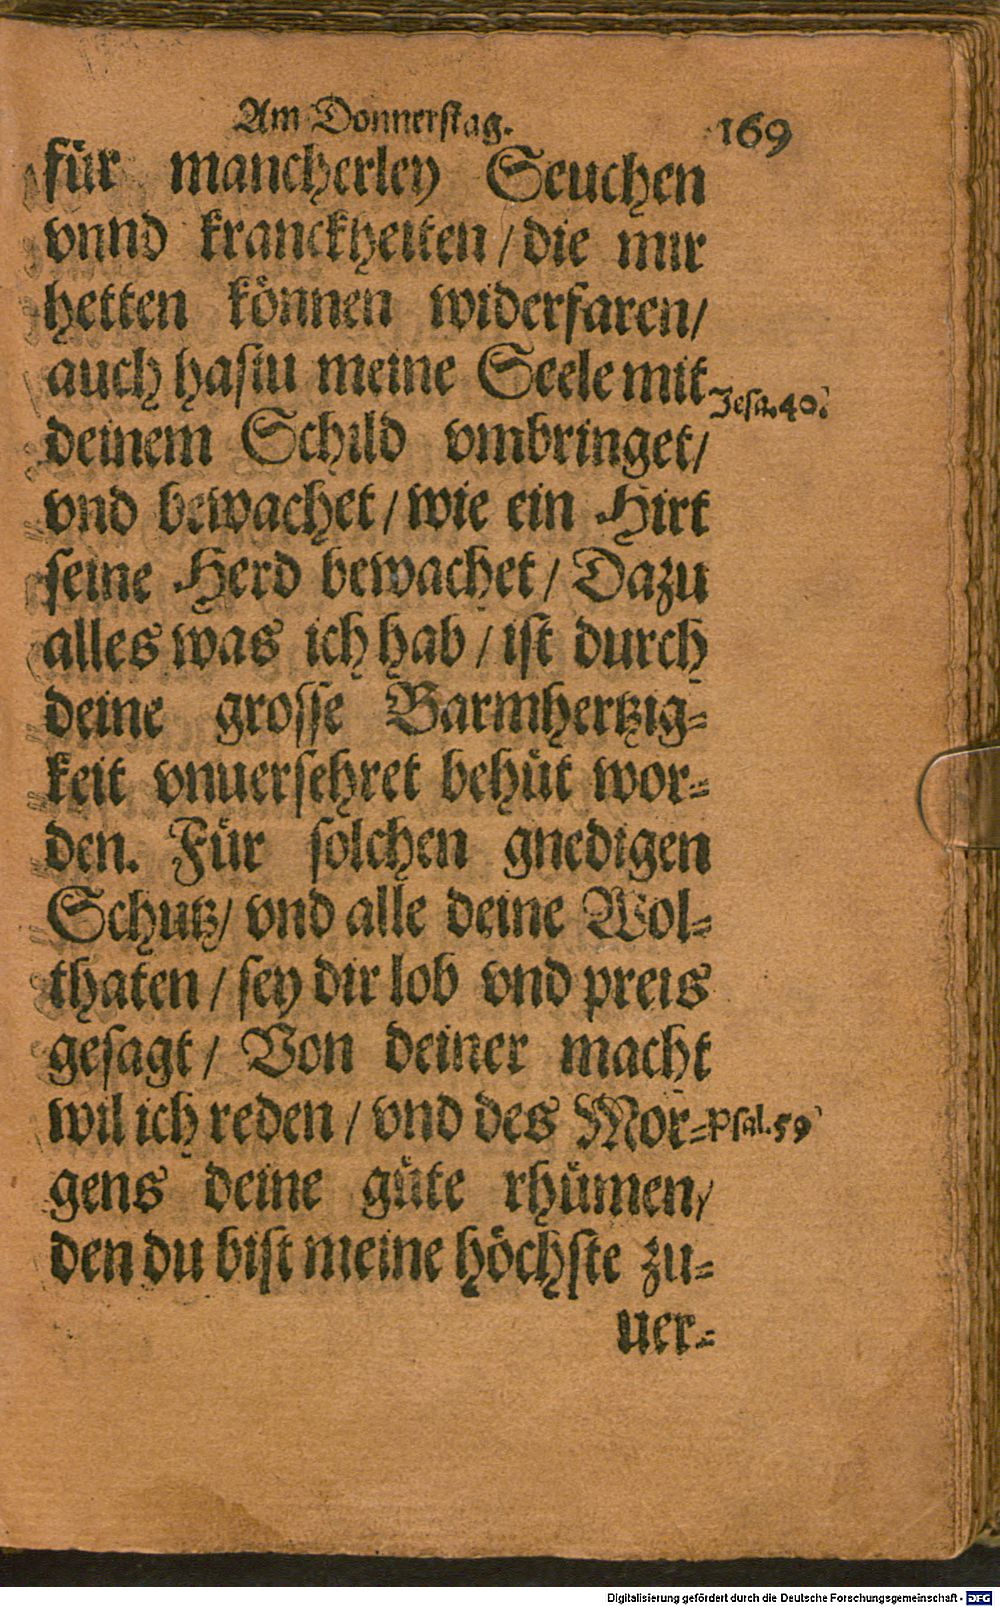 Am Donnerstag. 169
für mancherley Seuchen
vnnd kranckheiten / die mir
hetten können widerfaren /
auch hastu meine Seele mit
Jesa. 40.
deinem Schild vmbringet /
vnd bewachet / wie ein Hirt
seine Herd bewachet / Dazu
alles was ich hab / ist durch
deine grosse Barmhertzig=
keit vnuersehret behüt wor=
den. Für solchen gnedigen
Schutz / vnd alle deine Wol=
thaten / sey dir lob vnd preis
gesagt / Von deiner macht
wil ich reden / vnd des Mor=
Psal. 59
gens deine güte rhümen /
den du bist meine höchste zu=
uer=
Digitalisierung gefördert durch die Deutsche Forschungsgemeinschaft - DFG